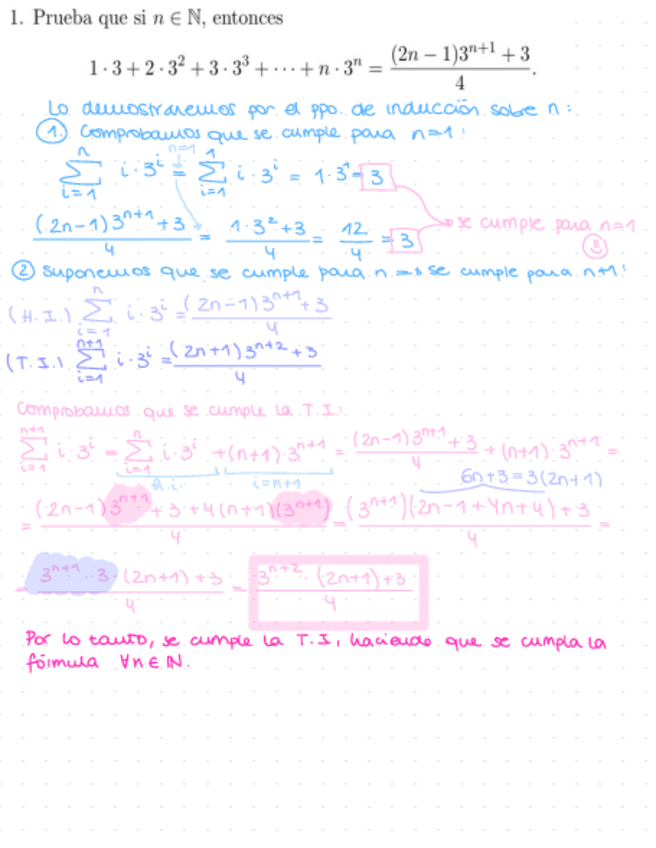 1. Prueba que si n ∈ ℕ, entonces
1·3 + 2·3² + 3·3³ + ··· + n·3ⁿ = ((2n − 1)3ⁿ⁺¹ + 3)/4.
Lo demostraremos por el ppo. de inducción sobre n:
① Comprobamos que se cumple para n=1:
n=1
∑_{i=1}^{n} i·3ⁱ = ∑_{i=1}^{1} i·3ⁱ = 1·3¹ = 3
((2n-1)3ⁿ⁺¹+3)/4 = (1·3²+3)/4 = 12/4 = 3 → se cumple para n=1
② Suponemos que se cumple para n => se cumple para n+1:
(H.I.) ∑_{i=1}^{n} i·3ⁱ = ((2n-1)3ⁿ⁺¹+3)/4
(T.I.) ∑_{i=1}^{n+1} i·3ⁱ = ((2n+1)3ⁿ⁺²+3)/4
Comprobamos que se cumple la T.I.:
∑_{i=1}^{n+1} i·3ⁱ = ∑_{i=1}^{n} i·3ⁱ + (n+1)·3ⁿ⁺¹ = ((2n-1)3ⁿ⁺¹+3)/4 + (n+1)·3ⁿ⁺¹ =
i=n+1 6n+3=3(2n+1)
= ((2n-1)3ⁿ⁺¹+3+4(n+1)(3ⁿ⁺¹))/4 = ((3ⁿ⁺¹)(2n-1+4n+4)+3)/4 =
= (3ⁿ⁺¹·3·(2n+1)+3)/4 = (3ⁿ⁺²·(2n+1)+3)/4
Por lo tanto, se cumple la T.I, haciendo que se cumpla la
fórmula ∀n∈ℕ.